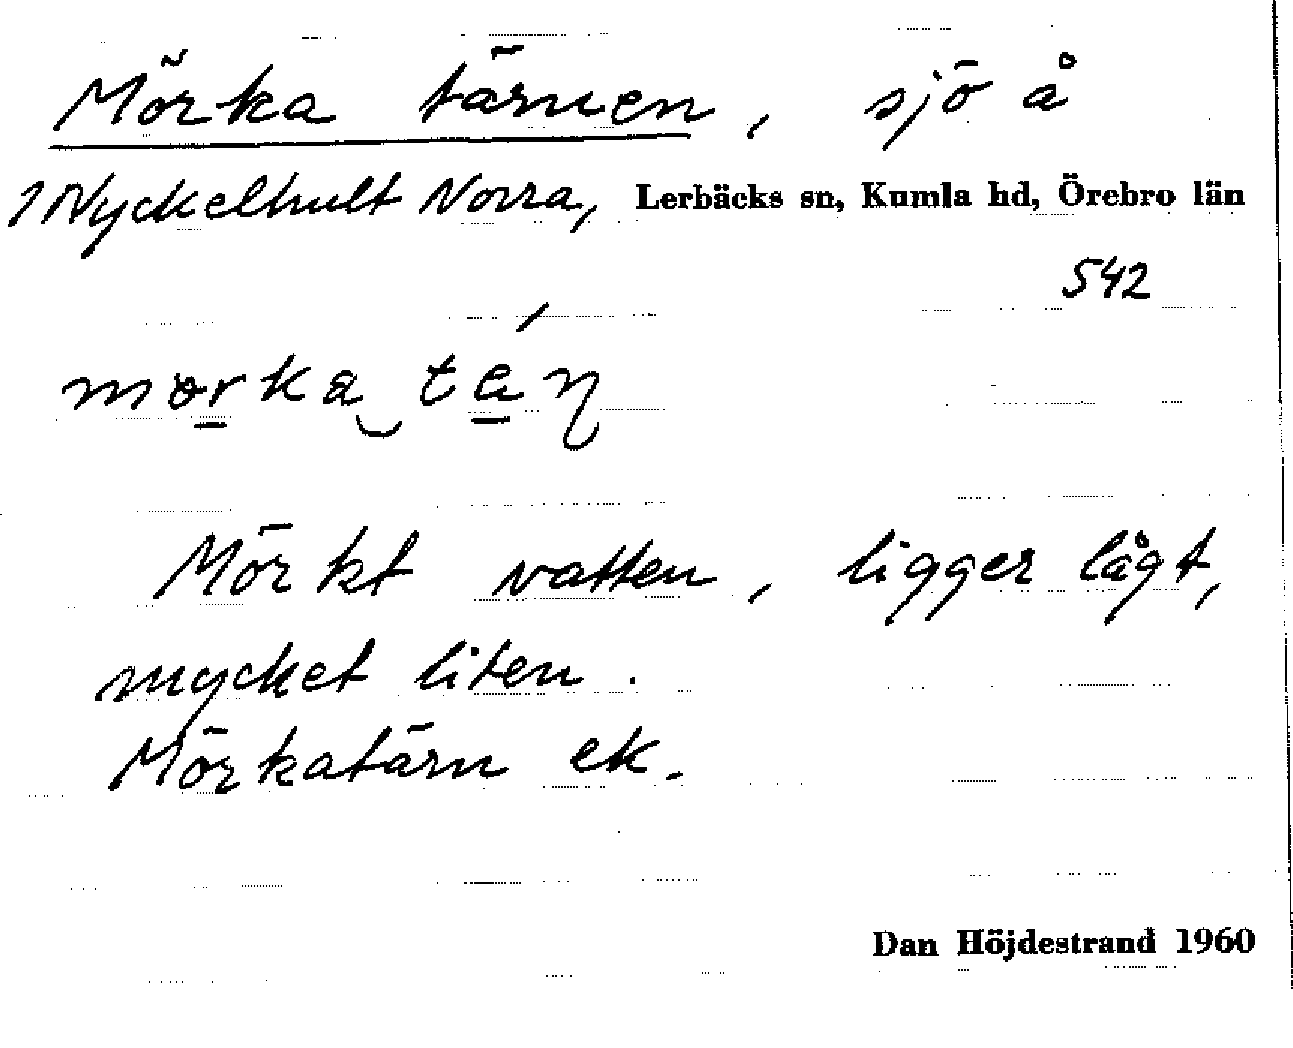 Mörka tärnen, sjö å
1 Nyckelhult Norra, Lerbäcks sn, Kumla hd, Örebro län
542
Mörkt vatten, ligger lågt,
mycket liten.
Mörkatärn ek.
Dan Höjdestrand 1960